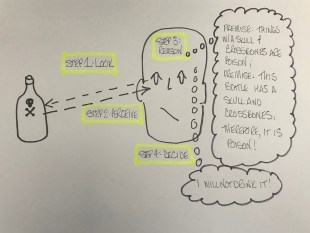 STEP 1: LOOK
STEP 2: PERCEIVE
STEP 3:
REASON
STEP 4: DECIDE
PREMISE: THINGS
W/A SKULL &
CROSSBONES ARE
POISON;
PREMISE: THIS
BOTTLE HAS A
SKULL AND
CROSSBONES;
THEREFORE, IT IS
POISON!
I WILL NOT DRINK IT!